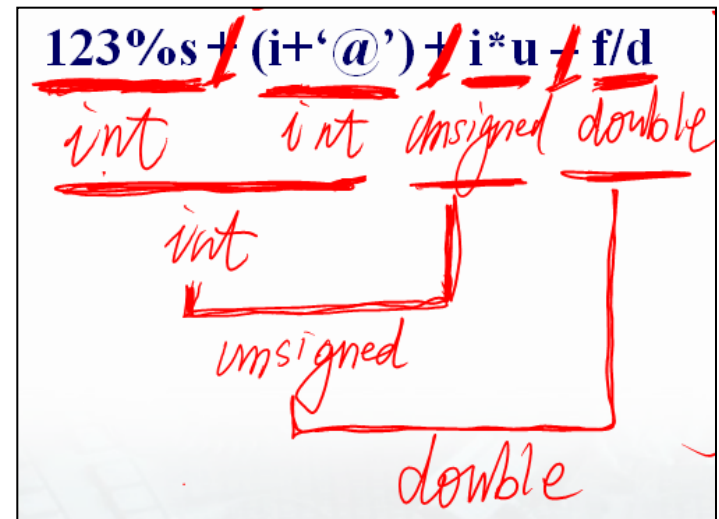 123%s + (i+‘@’) + i*u - f/d
int int unsigned double
int
unsigned
double